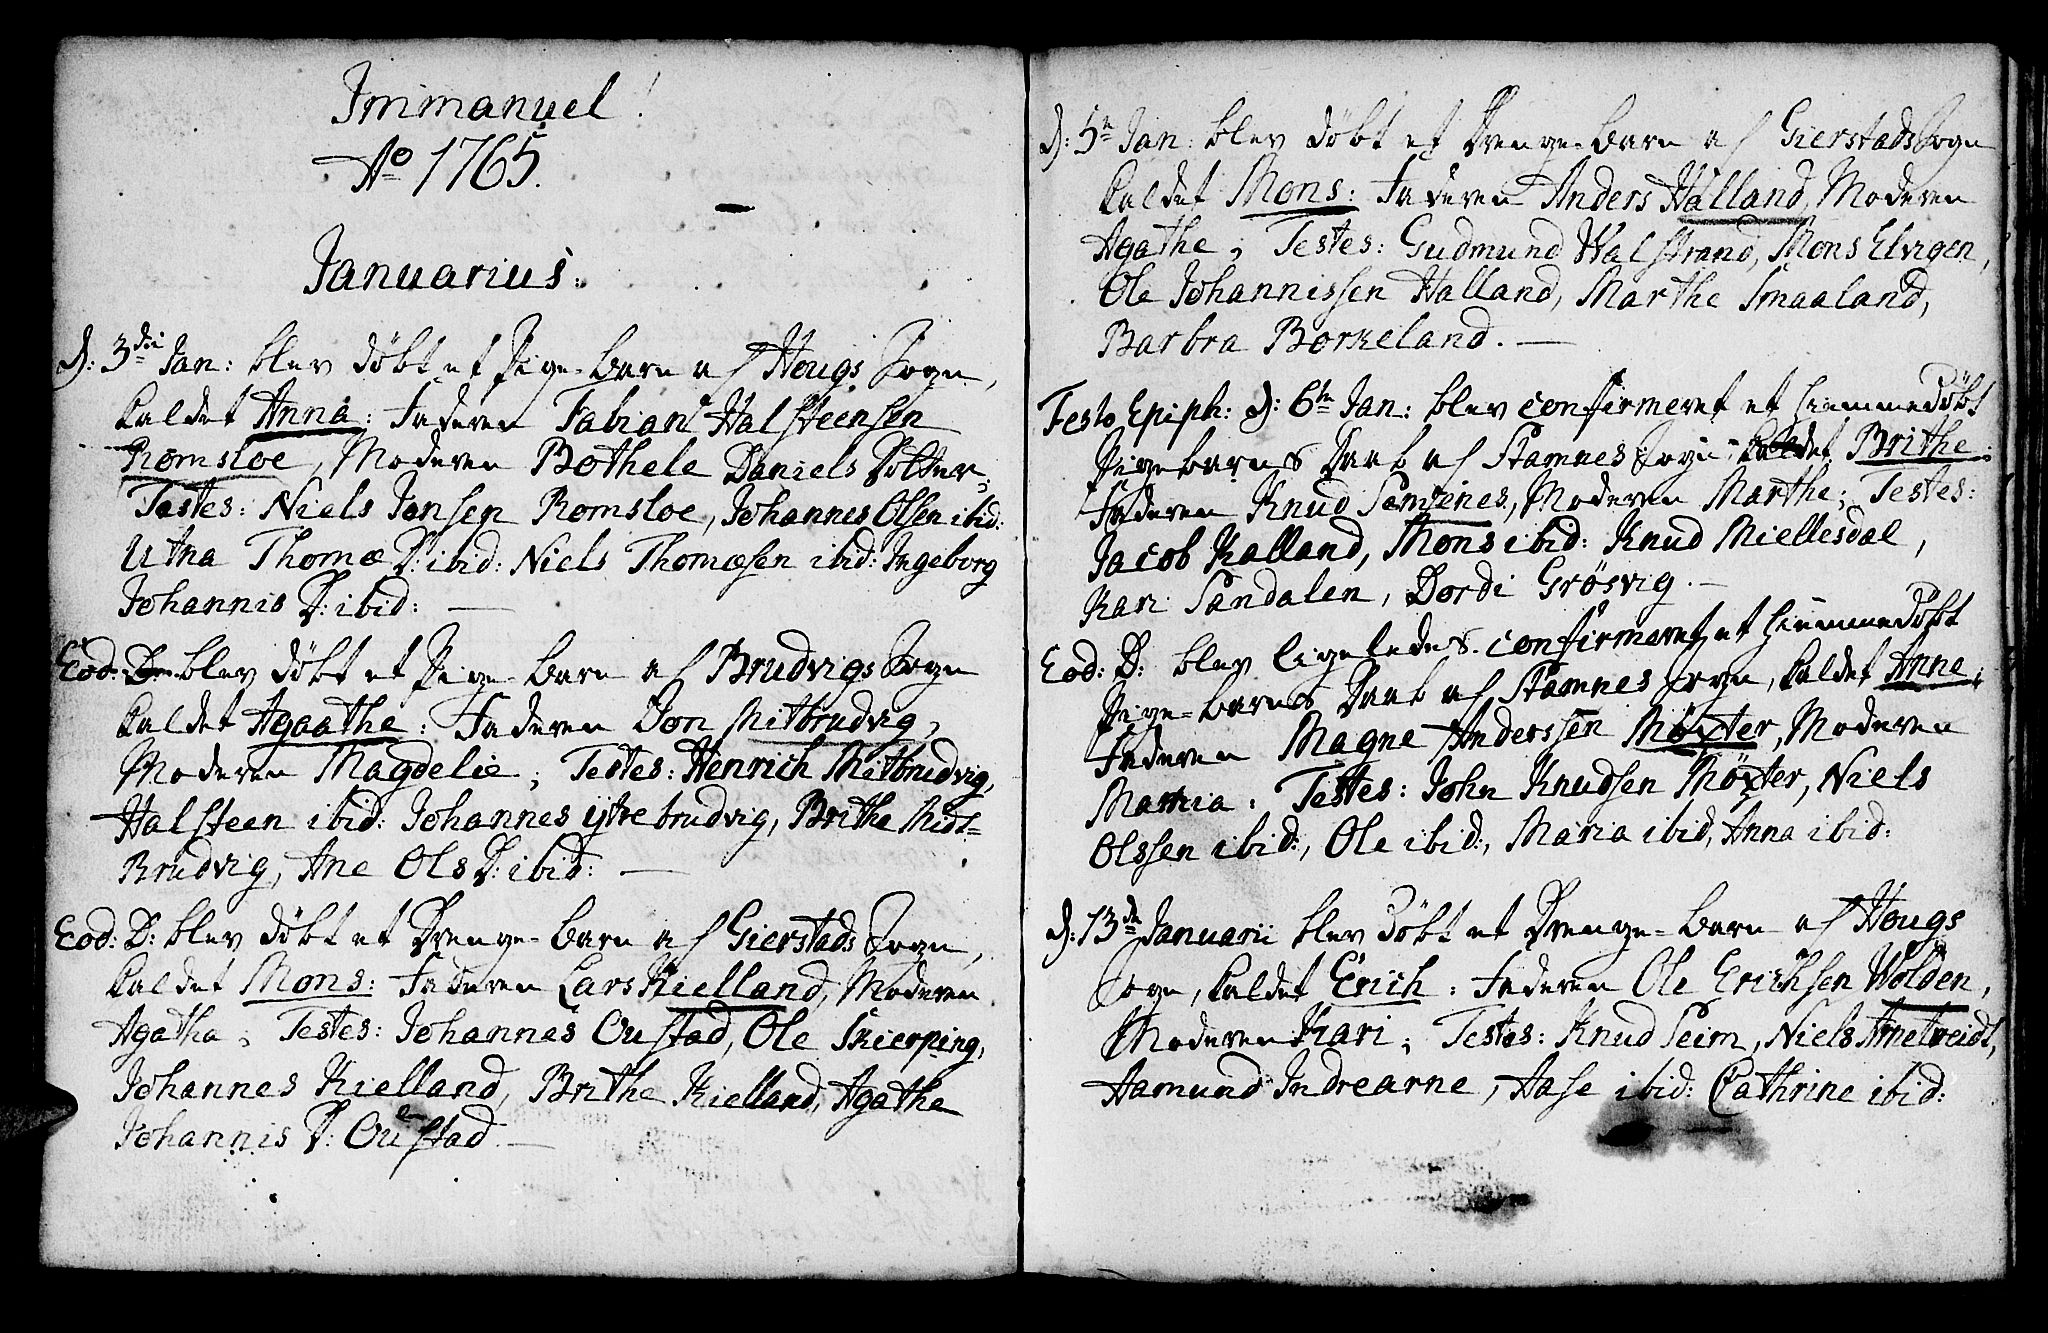 Immanuel!
Ao 1765.
Januarius.
d: 3die Jan: blev döbt et Pige-barn af Hougs Sogn,
kaldet Anna: Faderen Fabian Halsteensen
Romsloe, Moderen Bothele Daniels Dotter,
Testes: Niels Jansen Romsloe, Johannes Olsen ibid:
Utna Thomæ D: ibid: Niels Thomæsen ibid: Ingeborg
Johannis D: ibid: —
Eod: D: blev döbt et Pige-barn af Brudvigs Sogn
kaldet Agaathe: Faderen Jon Mitbrudvig,
Moderen Magdelie; Testes: Henrich Mitbrudvig,
Halsteen ibid: Johannes ytrebrudvig, Brithe Midt-
Brudvig, Ane Ols D: ibid: —
Eod: D: blev döbt et Drenge-barn af Gierstads Sogn,
kaldet Mons: Faderen Lars Kielland, Moderen
Agatha; Testes: Johannes Oustad, Ole Skierping,
Johannes Kielland, Brithe Kielland, Agathe
Johannis D: Oustad —
d: 5te Jan: blev döbt et Drenge-barn af Gierstads Sogn
kaldet Mons: Faderen Anders Halland, Moderen
Agathe; Testes: Gudmund Walstrand, Mons Elvigen,
Ole Johannissen Halland, Marthe Smaaland,
Barbra Borkeland. —
Festo Epiph: d: 6te Jan: blev confirmeret et hiemmedöbt
Pigebarns Daab af Stamnes Sogn, kaldet Brithe:
Faderen Knud, Moderen Marthe; Testes:
Jacob Kalland, Mons ibid: Knud Miellesdal,
Kari Sandalen, Dordi Grösvig. —
Eod: D: blev ligeledes confirmeret et hiemmedöbt
Pige-barns Daab af Stamnes Sogn, kaldet Anne;
Faderen Magne Anderssen Möxter, Moderen
Testes: John Knudsen Möxter, Niels
Olssen ibid:, Ole ibid:, Maria ibid, Anna ibid:
d: 13de Januarii blev döbt et Drenge-barn af Hougs
Sogn, kaldet Erich: Faderen Ole Erichsen Wolden,
Moderen Kari; Testes: Knud Seim, Niels Arnetveidt,
Aamund Indrearne, Aase ibid: Cathrine ibid: